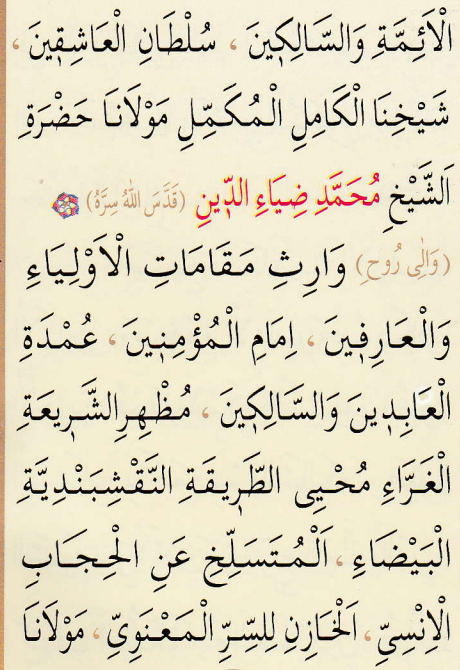 الْاَئِمَّةِ وَالسَّالِكِينَ ، سُلْطَانِ الْعَاشِقِينَ ،
شَيْخِنَا الْكَامِلِ الْمُكَمِّلِ مَوْلَانَا حَضْرَةِ
اَلشَّيْخِ مُحَمَّدِ ضِيَاءِ الدِّينِ (قَدَّسَ اللّٰهُ سِرَّهُ)
(وَاِلٰى رُوحِ) وَارِثِ مَقَامَاتِ الْاَوْلِيَاءِ
وَالْعَارِفِينَ ، اِمَامِ الْمُؤْمِنِينَ ، عُمْدَةِ
الْعَابِدِينَ وَالسَّالِكِينَ ، مُظْهِرِ الشَّرِيعَةِ
الْغَرَّاءِ مُحْيِى الطَّرِيقَةِ النَّقْشِبَنْدِيَّةِ
الْبَيْضَاءِ ، اَلْمُتَسَلِّخِ عَنِ الْحِجَابِ
الْاِنْسِىِّ ، اَلْخَازِنِ لِلسِّرِّ الْمَعْنَوِىِّ ، مَوْلَانَا